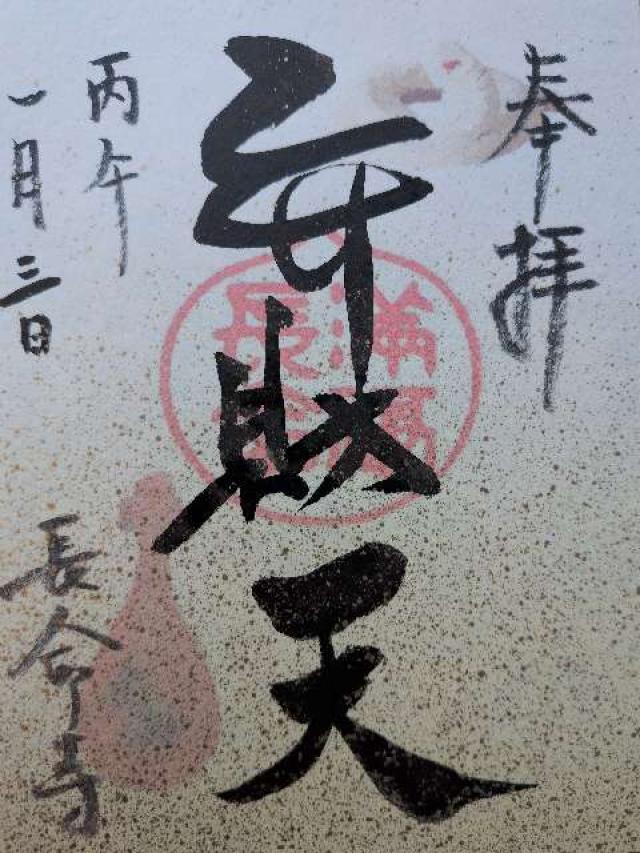 奉拝
弁財天
丙午
一月三日
長命寺